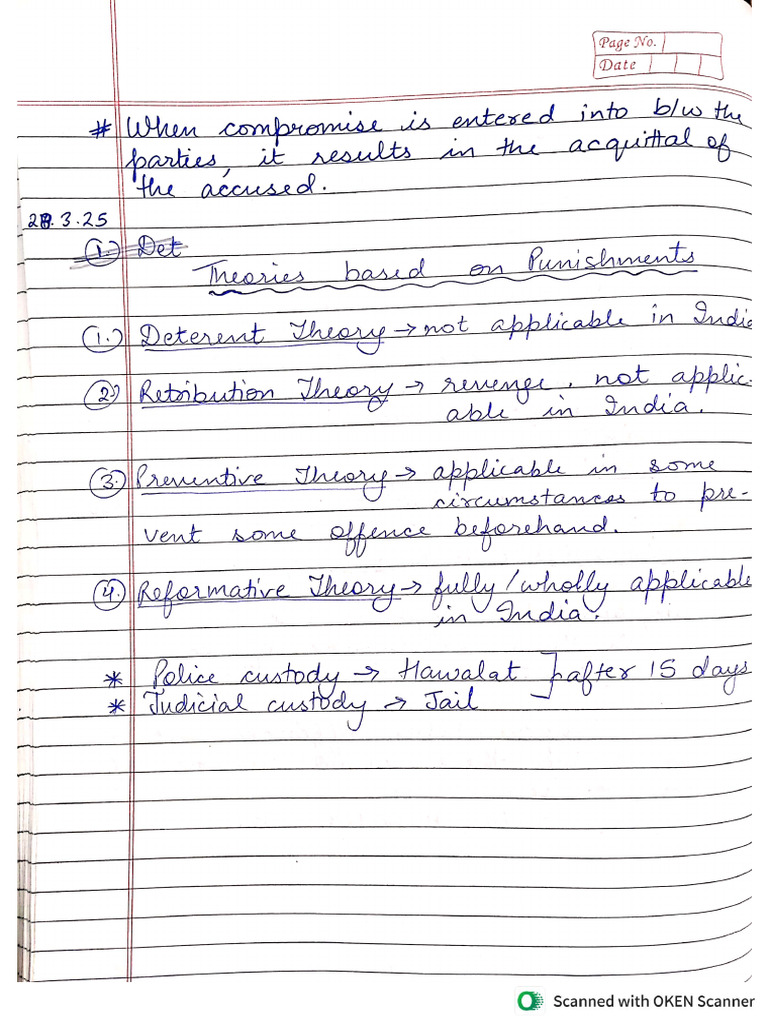 Page No.
Date
# When compromise is entered into b/w the
parties, it results in the acquittal of
the accused.
28.3.25
(1.) Det
Theories based on Punishments
(1.) Deterent Theory → not applicable in India
(2.) Retribution Theory → revenge, not applic-
able in India.
(3.) Preventive Theory → applicable in some
circumstances to pre-
vent some offence beforehand.
(4.) Reformative Theory → fully/wholly applicable
in India.
* Police custody → Hawalat ] after 15 days
* Judicial custody → Jail
Scanned with OKEN Scanner